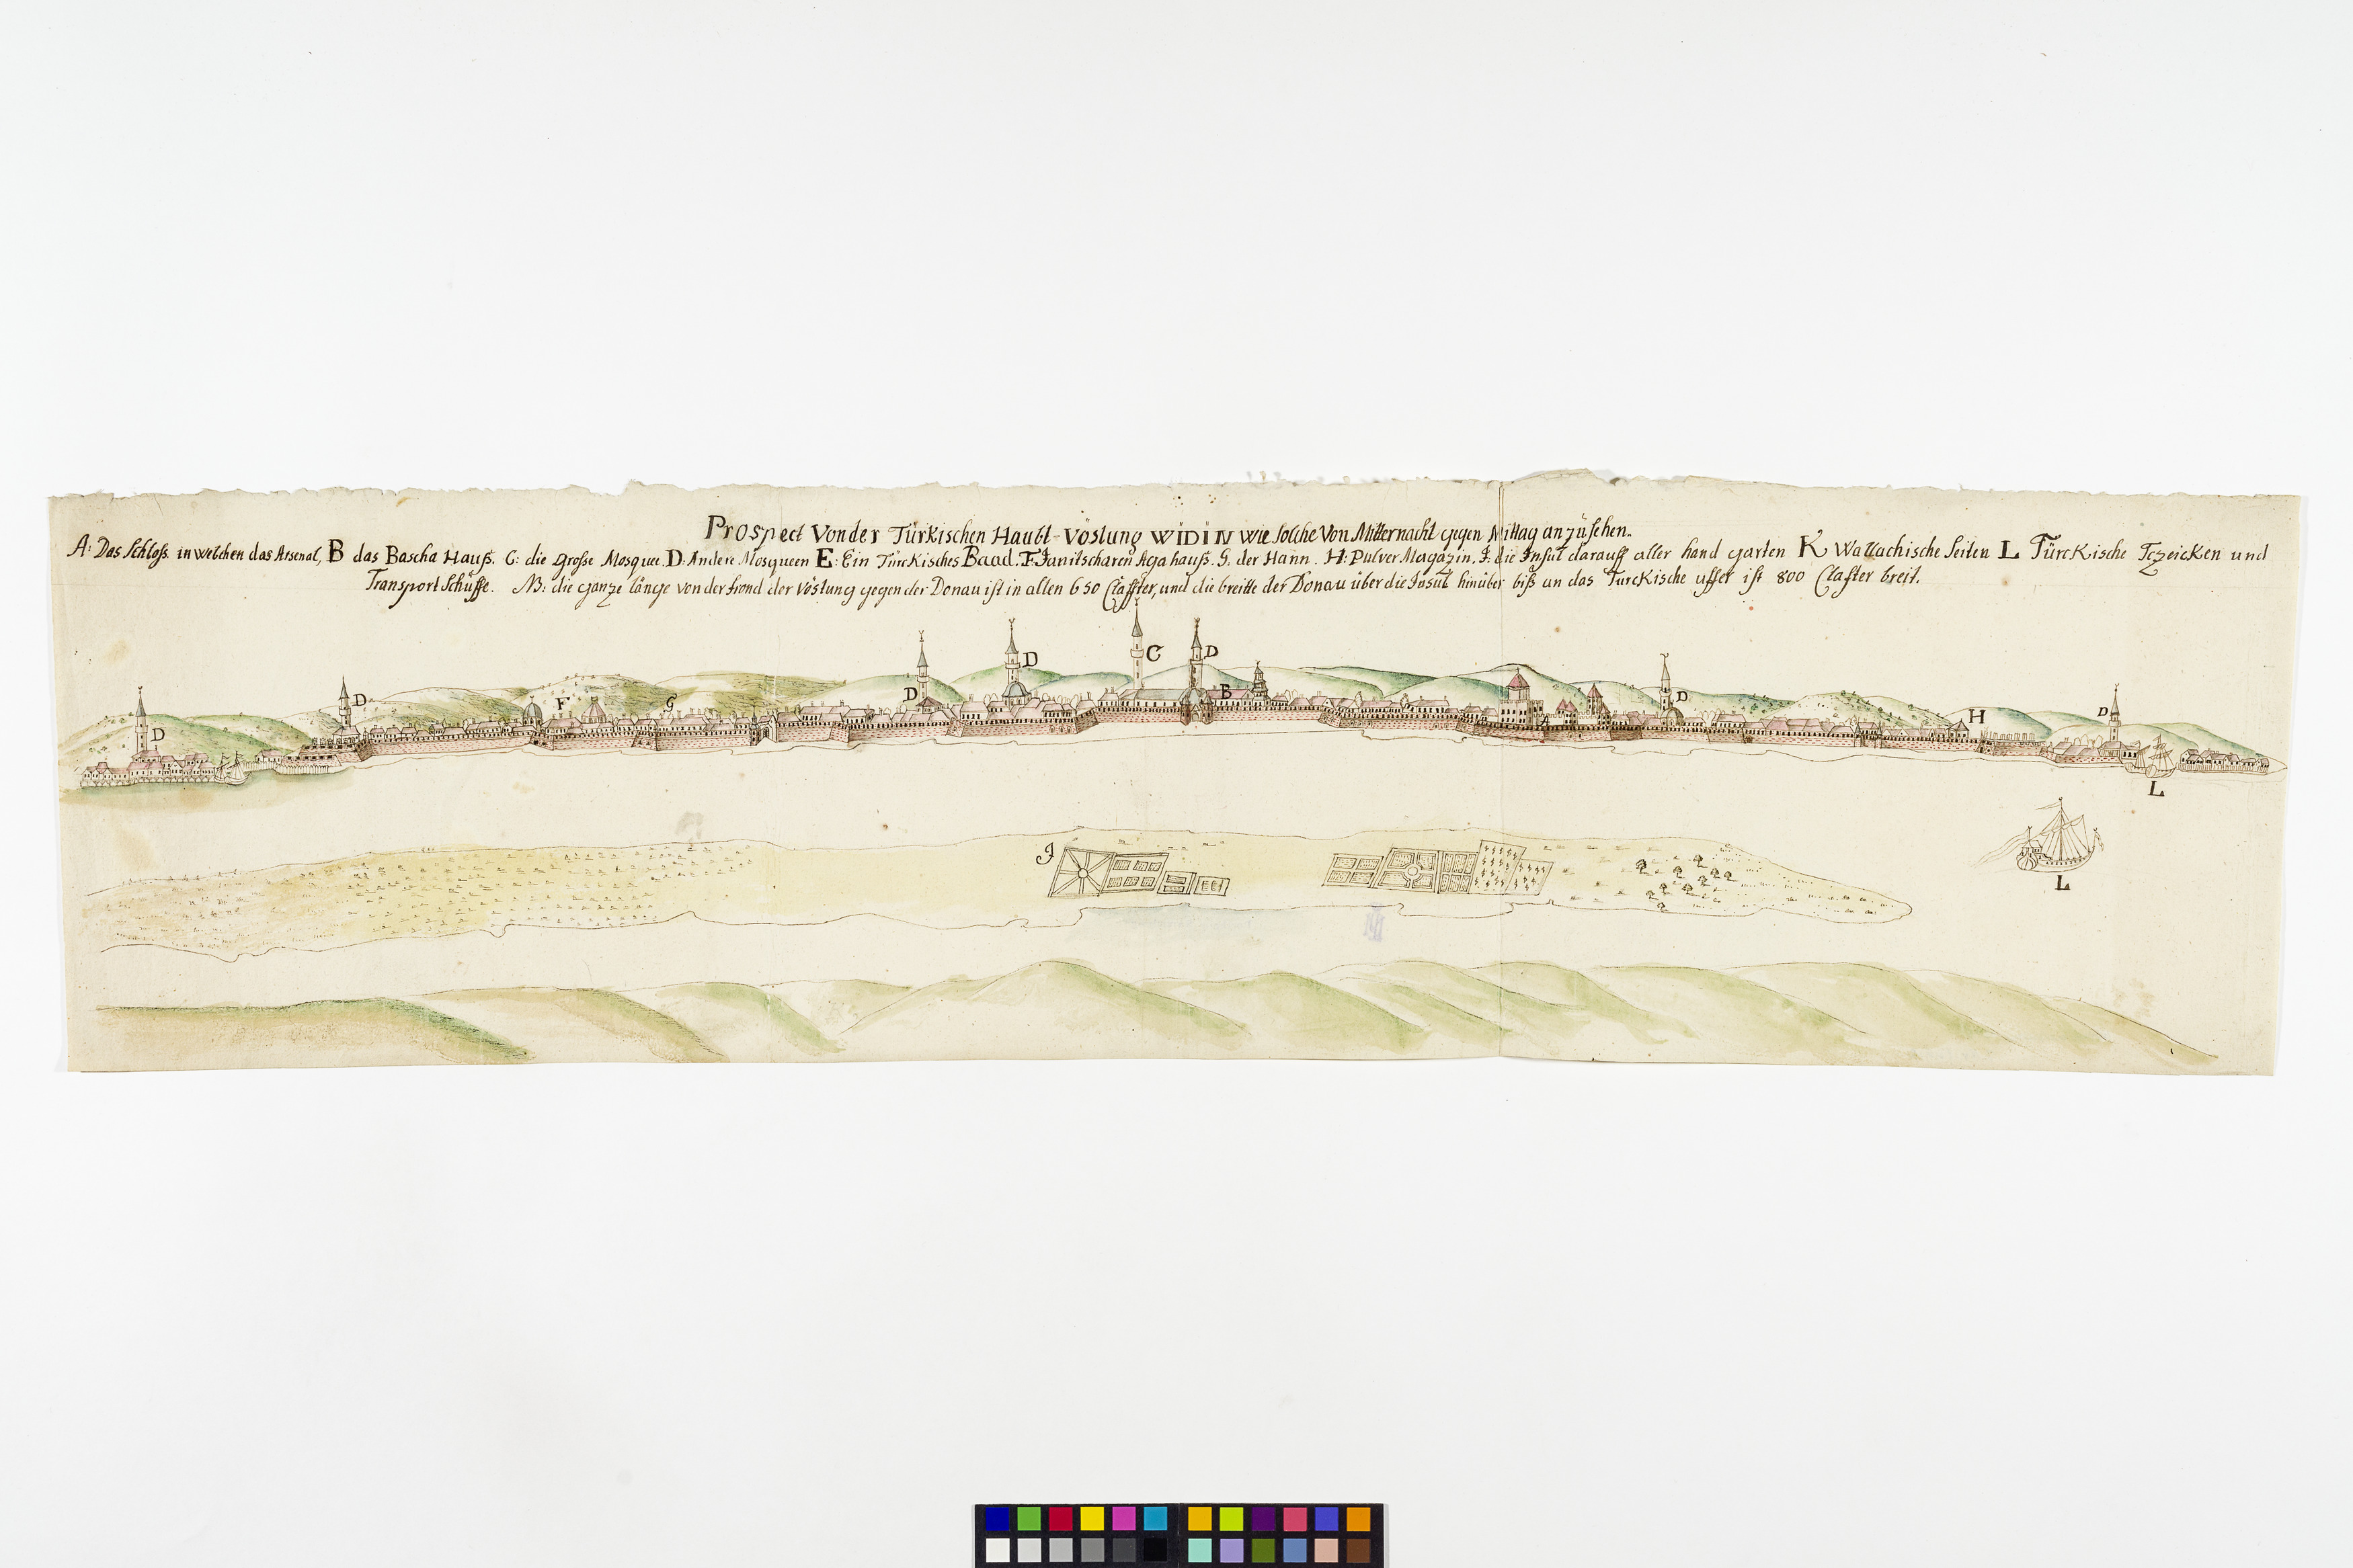 Prospect Von der Türkischen Haubt-Vöstung WIDIN wie solche Von Mitternacht gegen Mittag anzusehen.
A: Das Schloss in welchen das Arsenal, B das Bascha Hauß. C: die Große Mosquee. D: Andere Mosqueen E: Ein Türckisches Baad. F. Janitscharen Aga hauß. G. der Hann. H: Pulver Magazin. J: die Insul darauff aller hand garten K Wallachische Seiten L Türckische Tczeicken und
Transport Schüffe. NB: die ganze länge von der frond der Vöstung gegen der Donau ist in allen 650 Claffter, und die breitte der Donau über die Insul hinüber biß an das Turckische uffer ist 800 Claffter breit.
C
D
D
D
B
D
D
F
G
D
A
H
D
D
L
J
L